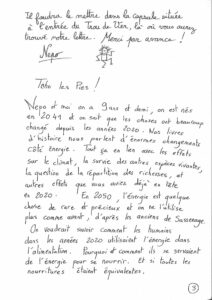 Il faudra le mettre dans la capsule située
à l'entrée du Trou de Ver, là où vous aurez
trouvé notre lettre. Merci par avance !
Nepo
Toto les Pies !
Nepo et moi on a 9 ans et demi, on est nés
en 2041 et on sait que les choses ont beaucoup
changé depuis les années 2020. Nos livres
d'histoire nous parlent d'énormes changements
côté énergie. Tout ça en lien avec les effets
sur le climat, la survie des autres espèces vivantes,
la question de la répartition des richesses, et
autres effets que vous aviez déjà en tête
en 2020. En 2050, l'énergie est quelque
chose de rare et précieux et on ne l'utilise
plus comme avant, d'après les anciens de Sassenage.
On voudrait savoir comment les humains
dans les années 2020 utilisaient l'énergie dans
l'alimentation. Pourquoi et comment ils se servaient
de l'énergie pour se nourrir. Et si toutes les
nourritures étaient équivalentes.
3